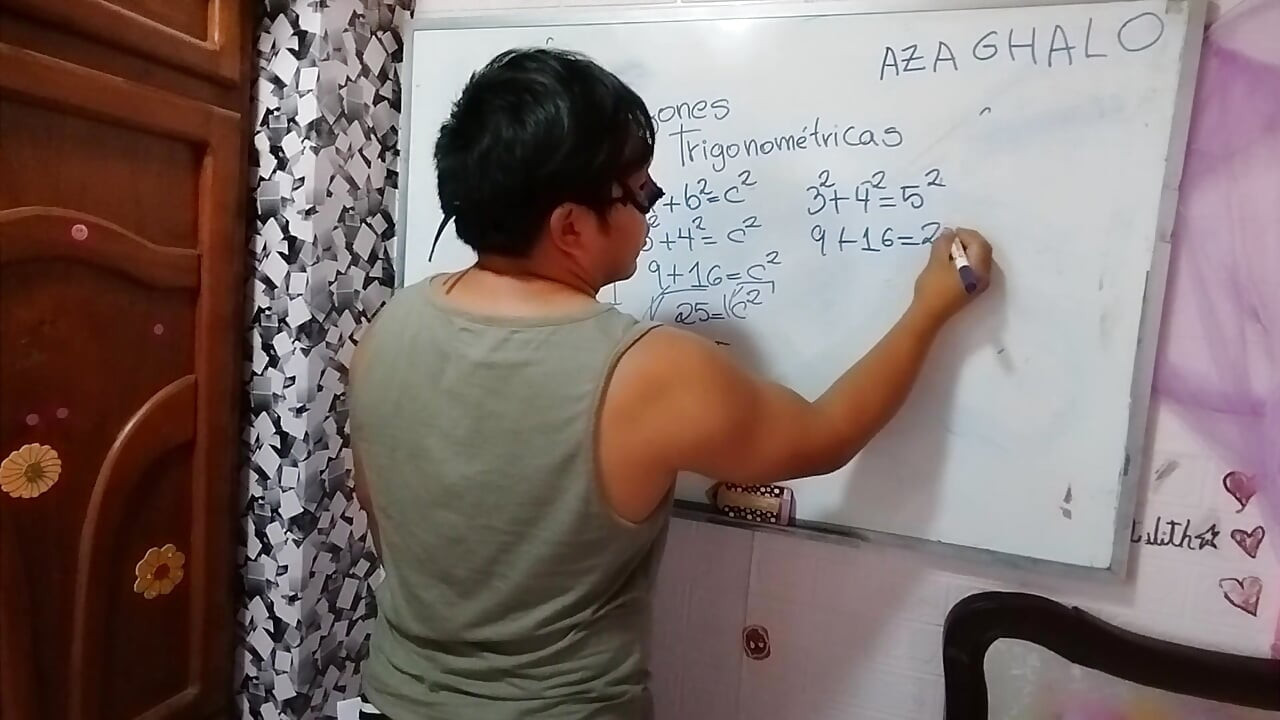 AZA GHALO
ones
Trigonométricas
+b²=c²
+4²=c²
9+16=c²
25=c²
3²+4²=5²
9+16=2
Lilith☆